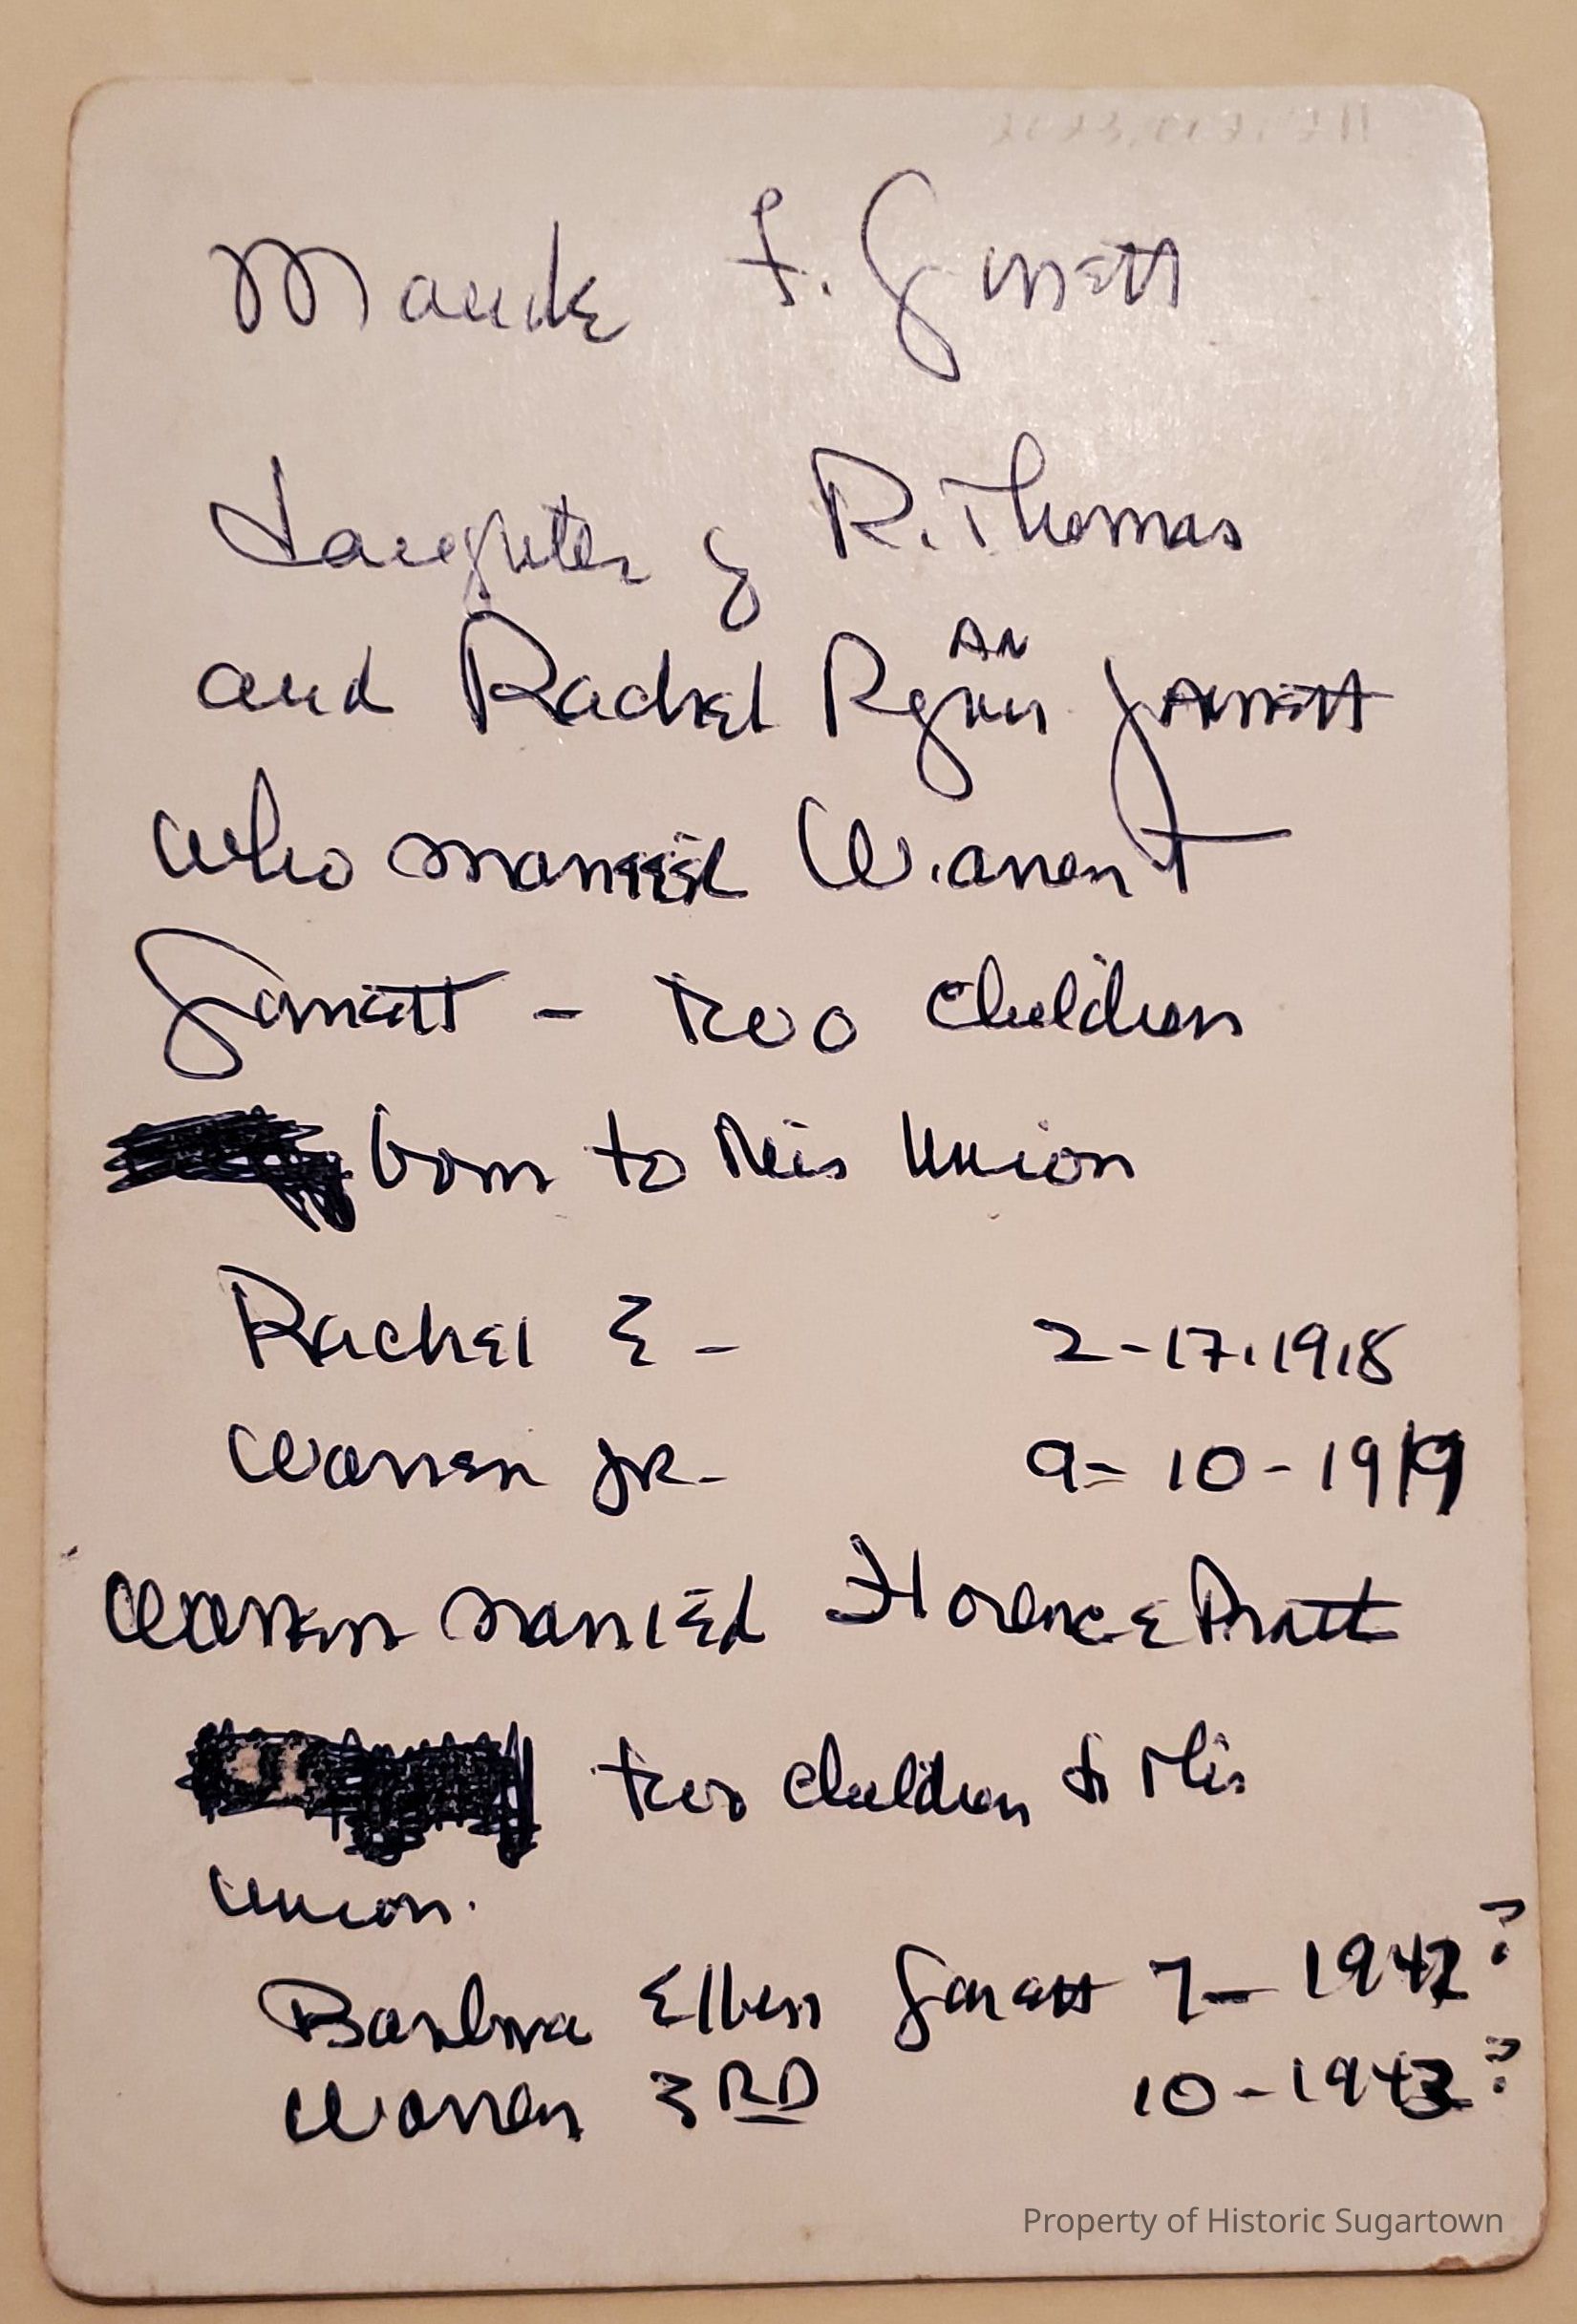 Maude F. Garrett
daughter of R. Thomas
and Rachel Ryan Garrett
AN
who married Warren T
Garrett - two children
born to this union
Rachel E - 2-17-1918
Warren JR- 9-10-1919
Warren married Florence Pratt
two children to this
union.
Barbara Ellen Garrett 7- 1942?
Warren 3RD 10-1943?
Property of Historic Sugartown